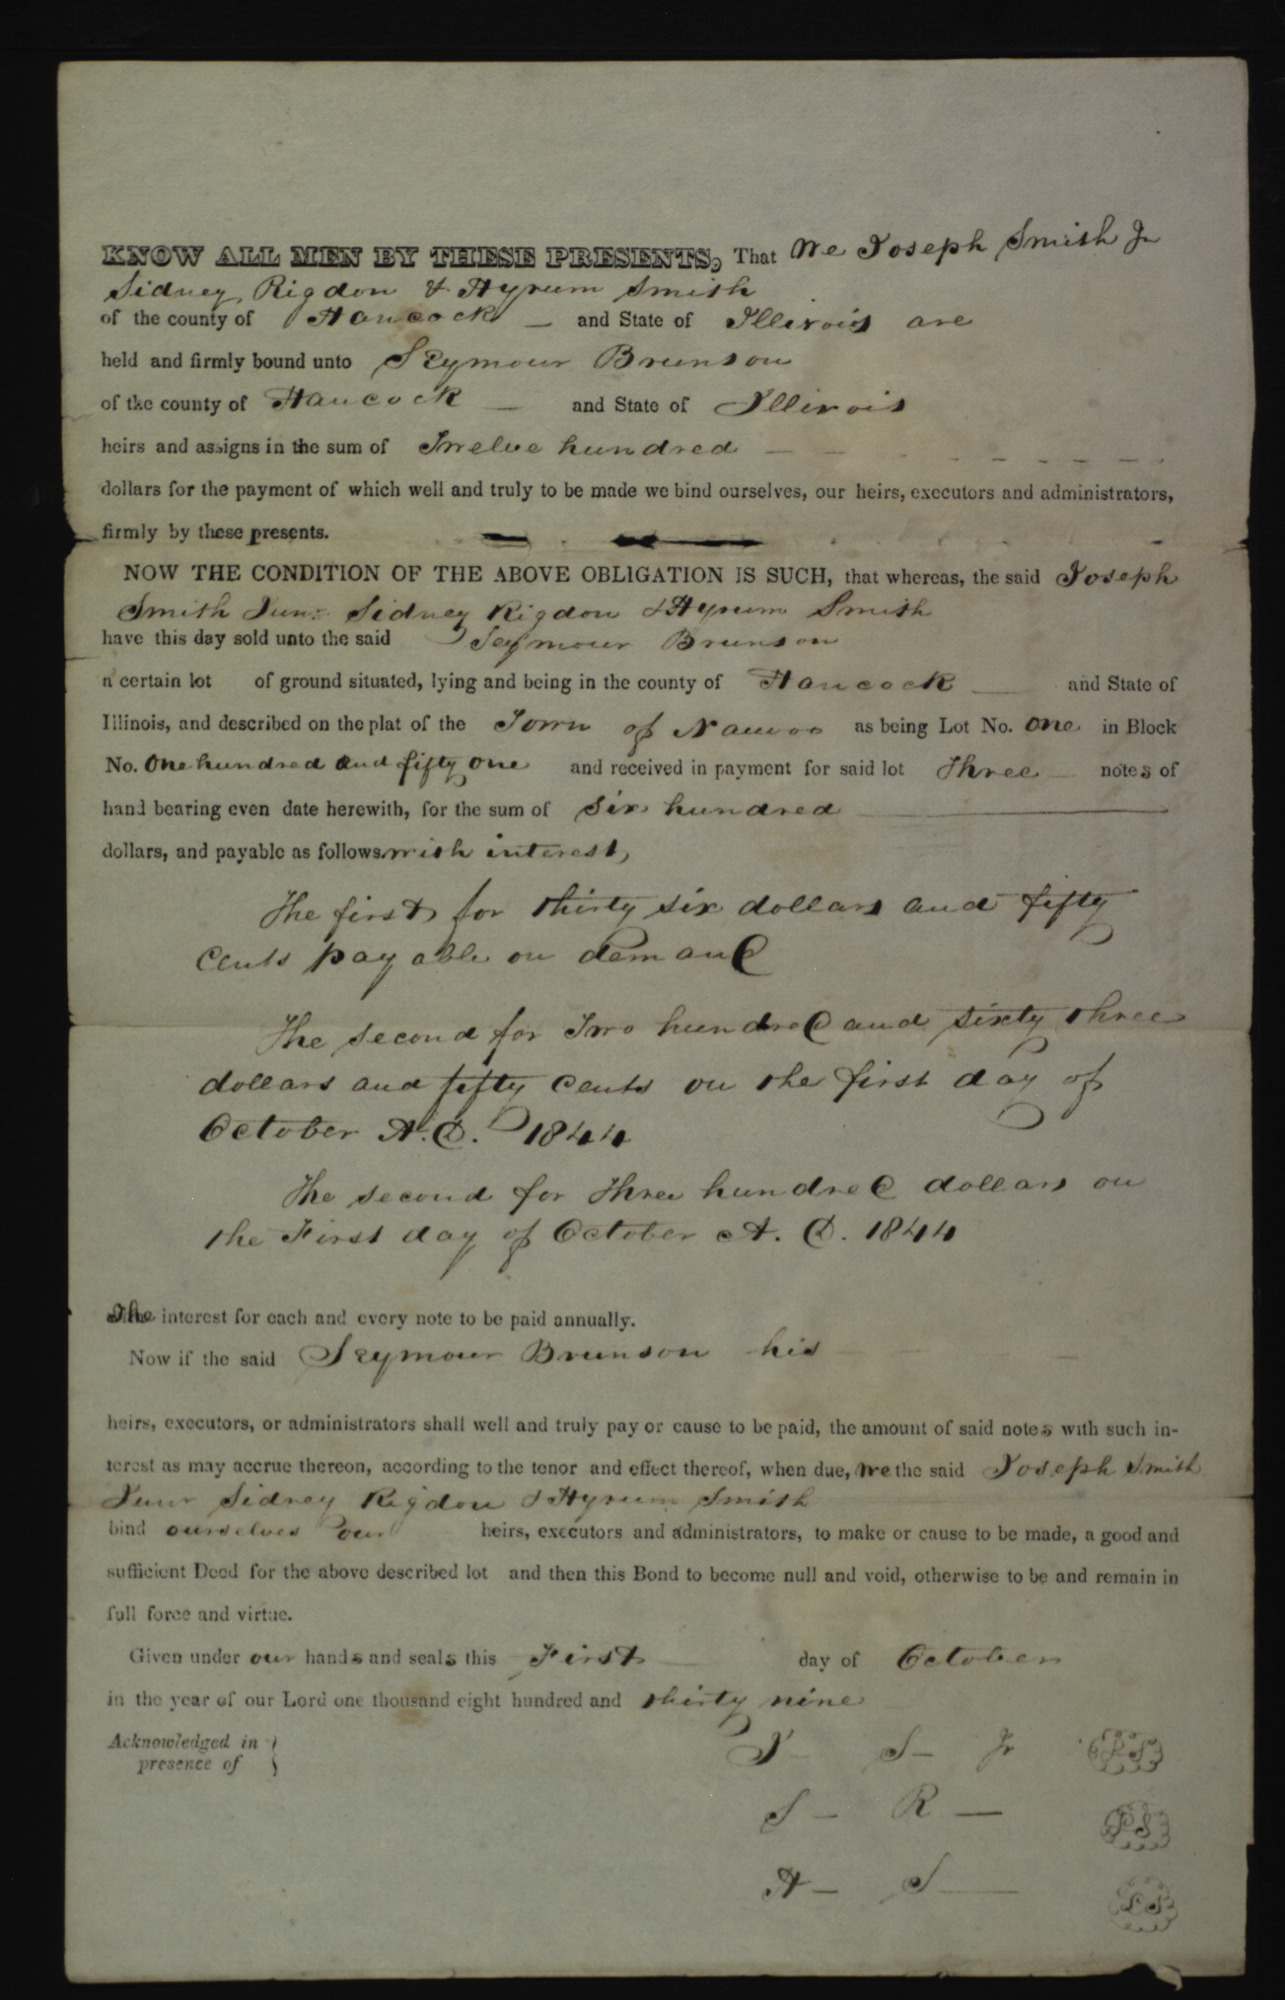 KNOW ALL MEN BY THESE PRESENTS, That We Joseph Smith Jr
Sidney Rigdon & Hyrum Smith
of the county of Hancock — and State of Illinois are
held and firmly bound unto Seymour Brunson
of the county of Hancock — and State of Illinois
heirs and assigns in the sum of Twelve hundred — — - - - - - - -
dollars for the payment of which well and truly to be made we bind ourselves, our heirs, executors and administrators,
firmly by these presents.
NOW THE CONDITION OF THE ABOVE OBLIGATION IS SUCH, that whereas, the said Joseph
Smith Junr. Sidney Rigdon & Hyrum Smith
have this day sold unto the said Seymour Brunson
a certain lot of ground situated, lying and being in the county of Hancock — and State of
Illinois, and described on the plat of the Town of Nauvoo as being Lot No. one in Block
No. One hundred and fifty one and received in payment for said lot three — notes of
hand bearing even date herewith, for the sum of six hundred —
dollars, and payable as follows with interest,
The first for thirty six dollars and fifty
cents payable on demand
The second for Two hundred and sixty three
dollars and fifty cents on the first day of
October A.D. 1844
The second for Three hundred dollars on
the First day of October A. D. 1844
The interest for each and every note to be paid annually.
Now if the said Seymour Brunson his
heirs, executors, or administrators shall well and truly pay or cause to be paid, the amount of said notes with such in-
terest as may accrue thereon, according to the tenor and effect thereof, when due, we the said Joseph Smith
Junr Sidney Rigdon & Hyrum Smith
bind ourselves our heirs, executors and administrators, to make or cause to be made, a good and
sufficient Deed for the above described lot and then this Bond to become null and void, otherwise to be and remain in
full force and virtue.
Given under our hands and seals this First — day of October
in the year of our Lord one thousand eight hundred and thirty nine
Acknowledged in } J— S— Jr LS
presence of
S — R — LS
H — S — LS